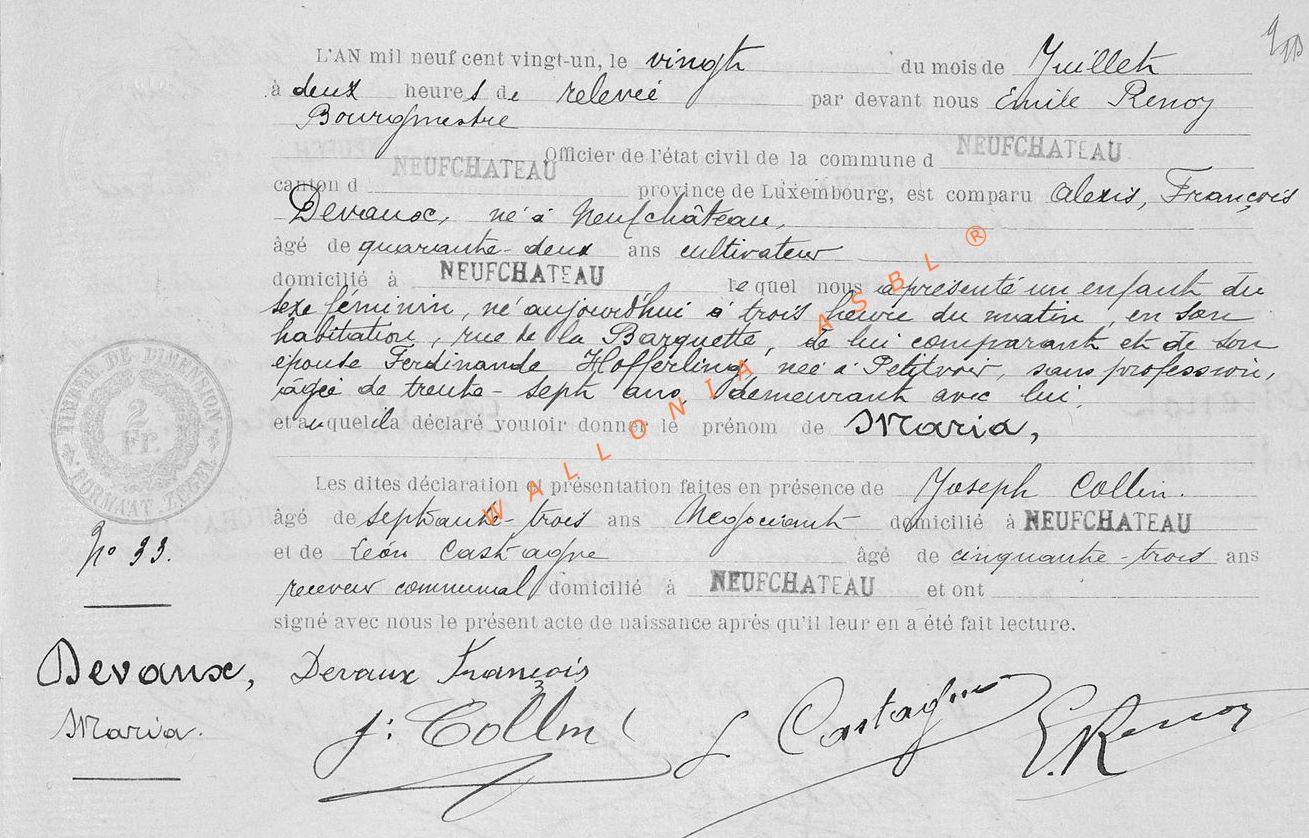 L'AN mil neuf cent vingt-un, le vingt du mois de Juillet
à deux heures de relevée par devant nous Emile Renoy
Bourgmestre
Officier de l'état civil de la commune d NEUFCHATEAU
canton d NEUFCHATEAU province de Luxembourg, est comparu Alexis, François
Devaux, né à Neufchâteau,
âgé de quarante-deux ans cultivateur
domicilié à NEUFCHATEAU lequel nous a présenté un enfant du
sexe féminin, né aujourd'hui à trois heures du matin, en son
habitation, rue de la Barquette, de lui comparant et de son
épouse Ferdinande Hofferling, née à Petitvoir, sans profession,
âgée de trente-sept ans, demeurant avec lui,
et auquel il a déclaré vouloir donner le prénom de Maria,
Les dites déclaration et présentation faites en présence de Joseph Collin.
âgé de septante-trois ans Négociant domicilié à NEUFCHATEAU
et de Léon Castagne âgé de cinquante-trois ans
receveur communal domicilié à NEUFCHATEAU et ont
signé avec nous le présent acte de naissance après qu'il leur en a été fait lecture.
TIMBRE DE DIMENSION
2 FR.
FORMAAT ZEGEL
N° 33.
Devaux,
Maria.
Devaux François
J: Collin
L Castagne
E. Renoy
WALLONIA ASBL ®